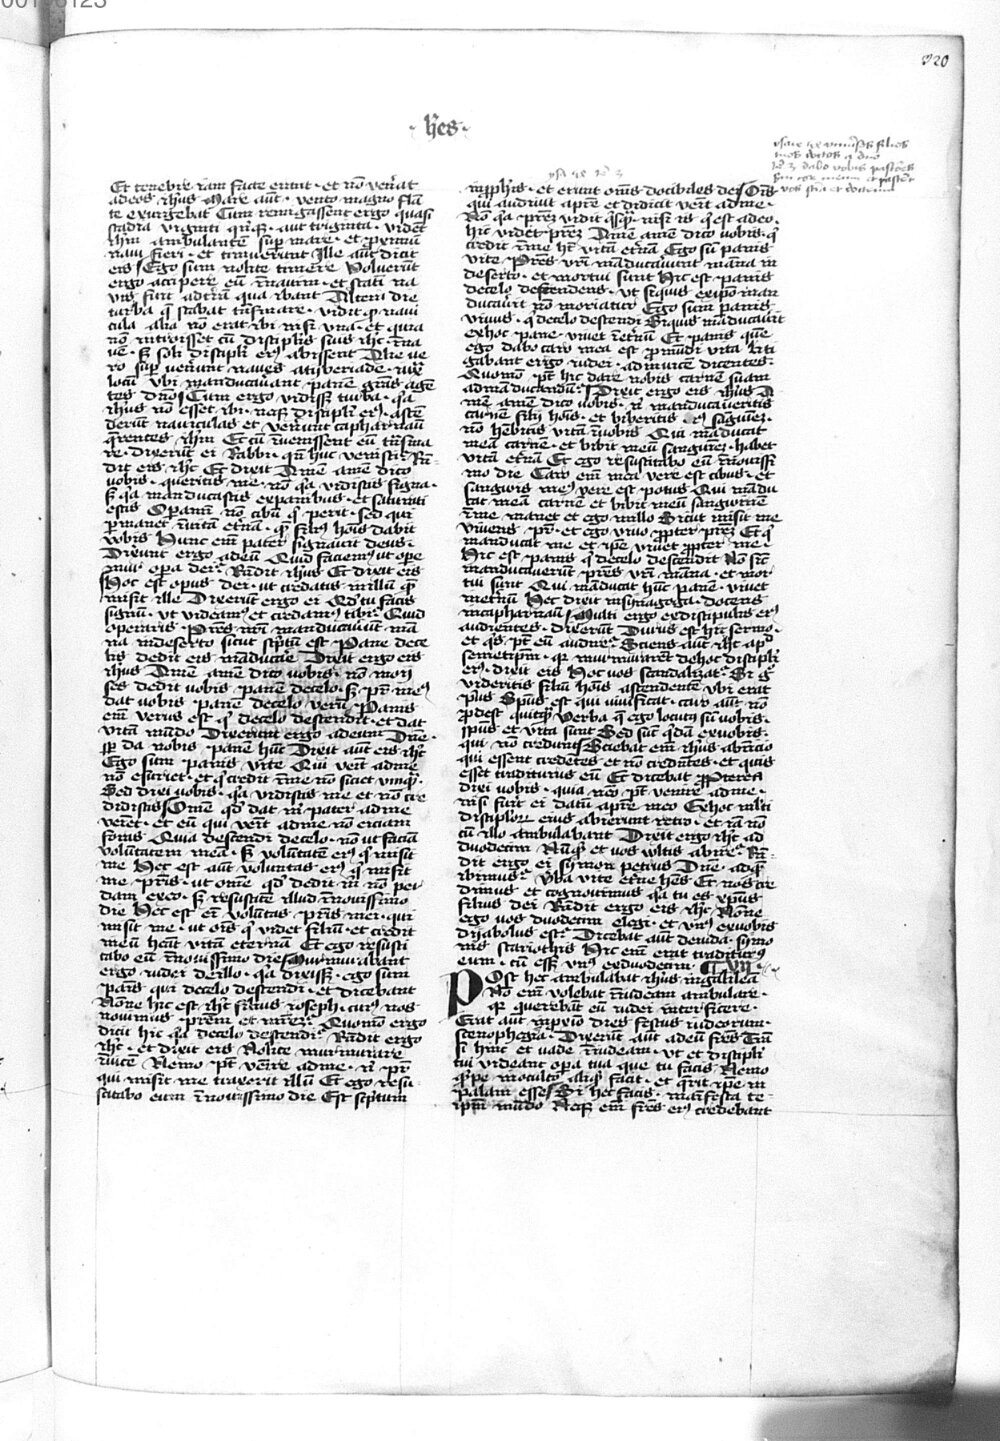 220
· hēs ·
Et tenebre iam facte erant · et nō ven̄at
ad eos ih̄us Mare aut̄ · vento magno flan
te exurgebat Cum remigassent ergo quasi
stadia viginti qn̄qꝫ · aut triginta · vident
ih̄m ambulantē suꝑ mare · et ꝓximū
navi fieri · et timuerunt Ille aut̄ dicit
eis Ego sum nolite timere Voluerūt
ergo accipere eū ī navim · et statī na
vis fuit ad tr̄ā quā ibant Altera die
turba q̄ stabat tn̄s mare · vidit qꝫ navi
cula alia nō erat ibi nisi vna · et quia
nō introisset cū discipl̄is suis ih̄c ī na
vē · sꝫ soli discipl̄i eiꝰ abissent Alie ve
ro suꝑ ven̄unt naves a tyberiade · iuxᵃ
locū vbi manducav̄ant panē grās agē
tes dn̄o Cum ergo vidissꝫ turba · qꝛ
ih̄us nō esset ibi · neqꝫ discipl̄i eiꝰ · ascē
derūt naviculas et venerūt capharnaū
q̄rentes ih̄m Et cū īvenissent eū tn̄s ma
re · dixerūt ei Rabbi · qn̄ huc venisti Rn̄
dit eis ih̄c Et dixit Amē amē dico
vobis · queritis me · nō qꝛ vidistis signa ·
sꝫ qꝛ manducastis ex panibus · et saturati
estis Opam̄ nō cibū q̄ perit · sed qui
ꝑmanet ī vitā et̄nā · quē filiꝰ hōīs dabit
vobis Hunc em̄ pater signavit deus ·
Dixerūt ergo ad eū Quid faciemꝰ ut ope
mur oꝑa dei Rn̄dit ih̄us Et dixit eis
Hoc est opus dei · ut credatis in illū quē
misit ille Dixerūt ergo ei Qd̄ tu facis
signū · ut videamꝰ et credamꝰ tibi Quid
operaris Pr̄es nr̄i manducav̄ūt man
na in deserto sicut scptū est Pane de ce
lis dedit eis māducare Dixit ergo eis
ih̄us Amē amē dico vobis · nō moy
ses dedit vobis panē de celo · sꝫ pr̄ meꝰ
dat vobis panē de celo verū Panis
em̄ verus est qͥ de celo descendit · et dat
vitā mūdo Dixerunt ergo ad eum Dn̄e ·
sꝑ da nobis panē hūc Dixit aut̄ eis ih̄c
Ego sum panis vite Qui ven̄t ad me
nō esuriet · et qͥ credit ī me nō sitiet vmqꝫ ·
Sed dixi vobis · qꝛ vidistis me et nō cre
didistis Omē qd̄ dat m̄ pater ad me
veniet · et eū qui ven̄t ad me nō eiciam
foras Quia descendi de celo · nō ut faciā
voluntatem meā · sꝫ voluntatē eiꝰ qͥ misit
me Hec est aut̄ voluntas eiꝰ qͥ misit
me pr̄is · ut omē qd̄ dedit m̄ nō per
dam ex eo · sꝫ resuscitē illud ī novissimo
die Hec est em̄ volūtas pr̄is mei · qui
misit me · ut om̄is qͥ videt filiū · et credit
in eū habeat vitā eternā Et ego resusci
tabo eum ī novissimo die Murmurabant
ergo iudei de illo · qꝛ dixissꝫ · ego sum
panis qui de celo descendi · et dicebant
Nōne hic est ih̄c filius ioseph · cuiꝰ nos
novimus patrē et matrē Quomō ergo
dicit hic qꝛ de celo descendi Rn̄dit ergo
ih̄c · et dixit eis Nolite murmurare
īvicē Nemo pōt venire ad me · nͥ pr̄
qui misit me traxerit illū Et ego resu
scitabo eum ī novissimo die Est scriptum
in ꝓphetis · et erunt om̄s docibiles dei Om̄is
qui audivit a pr̄e et didicit ven̄t ad me ·
Nō qꝛ prēꝫ vidit qͥsqꝫ · nisi is qͥ est a deo ·
hic videt prēꝫ Amē amē dico vobis · qͥ
credit ī me hꝫ vitā et̄nā Ego sū panis
vite Pr̄es vr̄i māducaverūt manna in
deserto · et mortui sunt Hic est panis
de celo descendens · ut si quis ex ip̄o man
ducav̄it nō moriatur Ego sum panis
vivus · qͥ de celo descendi Si quis māducav̄it
ex hoc pane vivet ī et̄nū Et panis quē
ego dabo caro mea est ꝓ mūdi vita Liti
gabant ergo iudei · ad invicē dicentes ·
Quomō pōt hic dare nobis carnē suam
ad manducandū Dixit ergo eis ih̄us A
mē amē dico vobis · nͥ manducaveritis
carnē filij hōīs · et biberitis eiꝰ sāguinē ·
nō hēbitis vitā ī vobis Qui māducat
meā carnē · et bibit meū sanguinē · habet
vitā et̄nā Et ego resuscitabo eū ī novissi
mo die Caro em̄ mea vere est cibus · et
sanguis meꝰ vere est potus Qui mādu
cat meā carnē et bibit meū sanguinē
ī me manet et ego in illo Sicut misit me
vivens pr̄ · et ego vivo ꝓpter prēꝫ Et qͥ
manducat me et ip̄e vivet ꝓpter me ·
Hic est panis qͥ de celo descendit Nō sic̄
manducaverūt pr̄es vr̄i māna · et mor
tui sunt Qui māducat hūc panē · vivet
in et̄nū Hec dixit in synagoga · docens
in capharnaū Multi ergo ex discipulis eiꝰ
audientes · dixerūt Durus est hic sermo ·
et qͥs pōt eū audire Sciens aut̄ ih̄c apᵈ
semetip̄m · qꝛ murmurarēt de hoc discipl̄i
eiꝰ · dixit eis Hoc vos scandalizat Si gͦ
videritis filiū hōīs ascendentē vbi erat
pͥus Sp̄us est qui vivificat · caro aut̄ nō
ꝓdest quicqꝫ Verba q̄ ego locutꝰ sū vobis ·
sp̄us et vita sunt Sed sūt qͥdā ex vobis ·
qui nō credunt Sciebat em̄ ih̄us ab īicio
qui essent credētes et nō credn̄tes · et quis
esset traditurus eū Et dicebat Propterea
dixi vobis · quia nēo pōt venire ad me ·
nisi fūit ei datū a pr̄e meo Ex hoc m̄lti
discipl̄oꝝ eius abierunt retro · et iā nō
cū illo ambulabant Dixit ergo ih̄c ad
duodecim Nūqͥd et vos vultis abire Rn̄
dit ergo ei symon petrus Dn̄e · ad quē
ibimus Vba vite et̄ne hēs Et nos cre
dimus et cognovimus qꝛ tu es xp̄us
filius dei Rn̄dit ergo eis ih̄c Nōne
ego vos duodecim elegi · et vnꝰ ex vobis
dyabolus est Dicebat aut̄ de iuda symo
nis scariothis Hic em̄ erat traditurꝰ
eum · cū essꝫ vnꝰ ex duodecim · C VII
Post hec ambulabat ih̄us in galilea
Nō em̄ volebat ī iudeam ambulare ·
qꝛ querebāt eū iudei interficere ·
Erat aut̄ in ꝓxīo dies festus iudeorum ·
scenophegia · Dixerūt aut̄ ad eū fr̄es Trāsi
hinc et vade ī iudeam · ut et discipl̄i
tui videant oꝑa tua que tu facis Nemo
qͥppe in occulto aliqͥd facit · et qrit ip̄e in
palam esse Si hec facis · manifesta te
ip̄m mūdo Neqꝫ em̄ fr̄es eiꝰ credebant